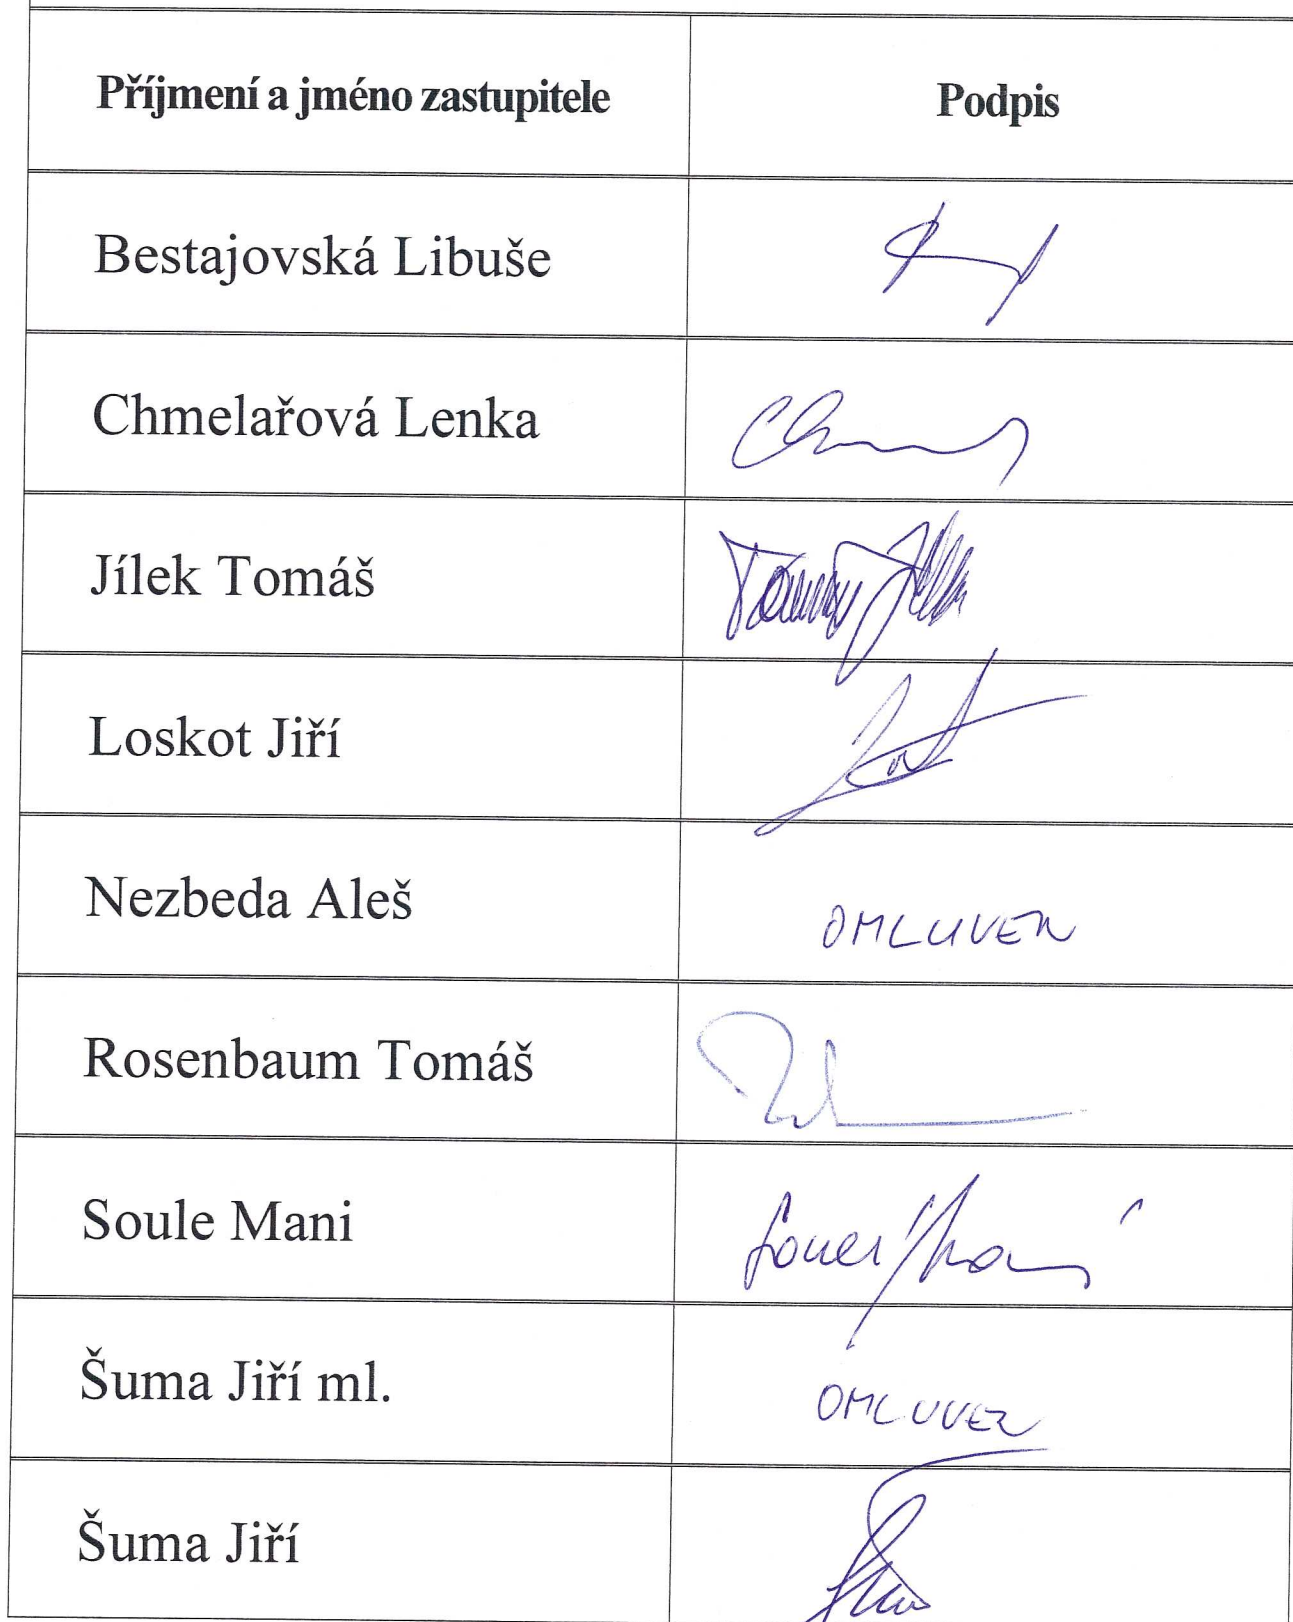 Příjmení a jméno zastupitele Podpis
Bestajovská Libuše
Chmelařová Lenka
Jílek Tomáš
Loskot Jiří
Nezbeda Aleš OMLUVEN
Rosenbaum Tomáš
Soule Mani
Šuma Jiří ml. OMLUVEN
Šuma Jiří